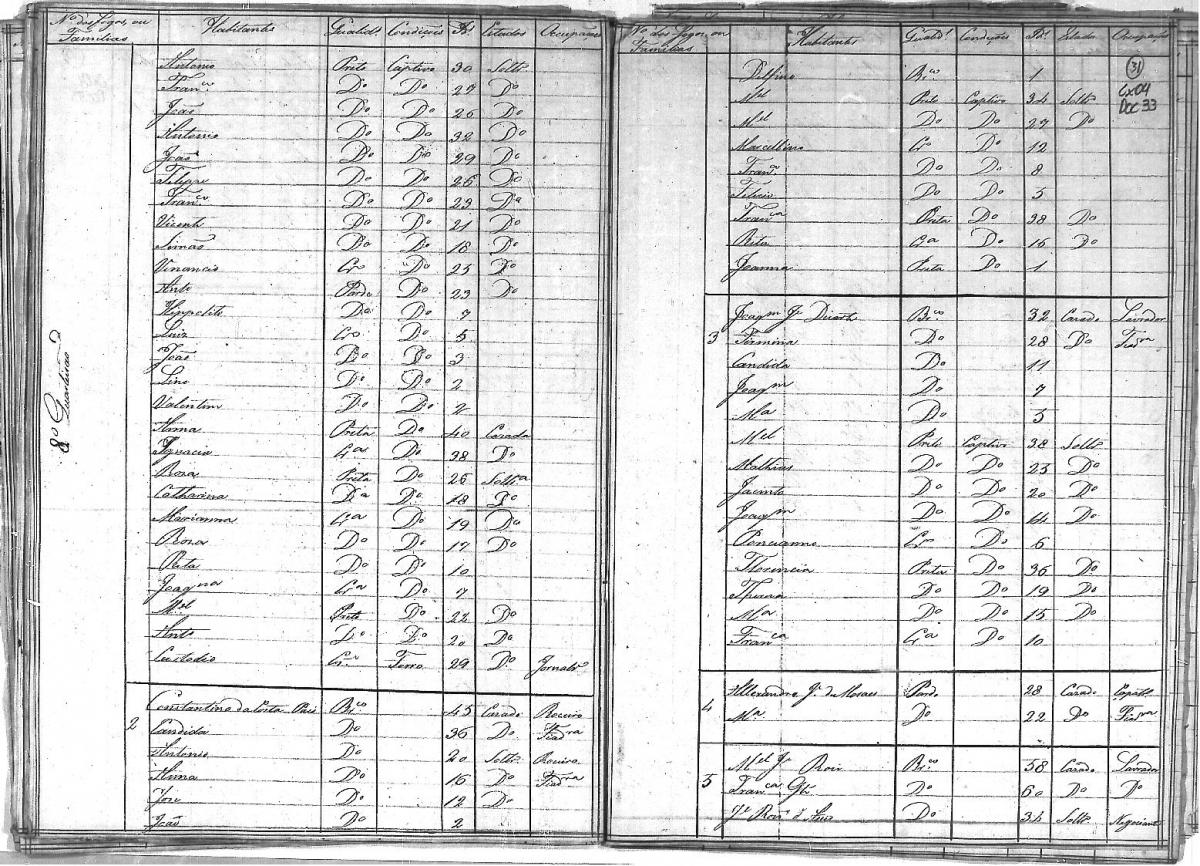 Nº dos Fogos, ou Familias Habitantes Qualid.s Condicois Id.s Estados Ocupacões
8º Quarteirão
Antonio Preto Captivo 30 Soltº
Fran.co Dº Dº 27 Dº
João Dº Dº 26 Dº
Antonio Dº Dº 32 Dº
João Dº Dº 29 Dº
Felippe Dº Dº 26 Dº
Fran.co Dº Dº 23 Dº
Vicente Dº Dº 21 Dº
Simão Dº Dº 18 Dº
Vinancio Crº Dº 25 Dº
Antº Pardo Dº 23 Dº
Hippolito Dº Dº 7
Luiz Crº Dº 5
João Dº Dº 3
Lino Dº Dº 2
Valentim Dº Dº 2
Anna Preta Dº 40 Casada
Ignacia Crª Dº 38 Dº
Rosa Preta Dº 26 Soltª
Catharina Dª Dº 18 Dº
Marianna Crª Dº 19 Dº
Rosa Dº Dº 17 Dº
Rita Dº Dº 10
Joaqna Crª Dº 7
Mel Preto Dº 22 Dº
Antº Dº Dº 20 Dº
Custodio Crº Forro 29 Dº Jornalrº
2 Constantino da Costa Pais Brco 45 Casado Roceiro
Candida Dº 36 Dº Fiadra
Antonio Dº 20 Soltº Roceiro
Anna Dº 16 Dº Fiadra
Jose Dº 12 Dº
João Dº 2
Nº dos Fogos, ou Familias Habitantes Qualid.s Condições Id.s Estado Ocupação
31
Cx04
Doc 33
Delfino Brco 1
Mel Preto Captivo 34 Soltº
Mel Dº Dº 27 Dº
Marcellino Crº Dº 12
Franº Dº Dº 8
Felicio Dº Dº 5
Franca Preta Dº 38 Dº
Rita Crª Dº 16 Dº
Joanna Preta Dº 1
3 Joaqm Je Duarte Brco 32 Casado Lavrador
Firmina Dº 28 Dº Fiadra
Candida Dº 11
Joaqm Dº 7
Mª Dº 5
Mel Preto Captivo 38 Soltº
Mathias Dº Dº 23 Dº
Jacinto Dº Dº 20 Dº
Joaqm Dº Dº 14 Dº
Poncianno Crº Dº 6
Florencia Preta Dº 36 Dº
Thereza Dº Dº 19 Dº
Mª Dº Dº 15 Dº
Franca Crª Dº 10
4 Allexandre Je de Moraes Pardo 28 Casado
Mª Dº 22 Dº Fiadra
5 Mel Je Roiz Brco 58 Casado Lavrador
Franca Dº 60 Dº Dº
Je Roiz Dº 34 Soltº Negociante